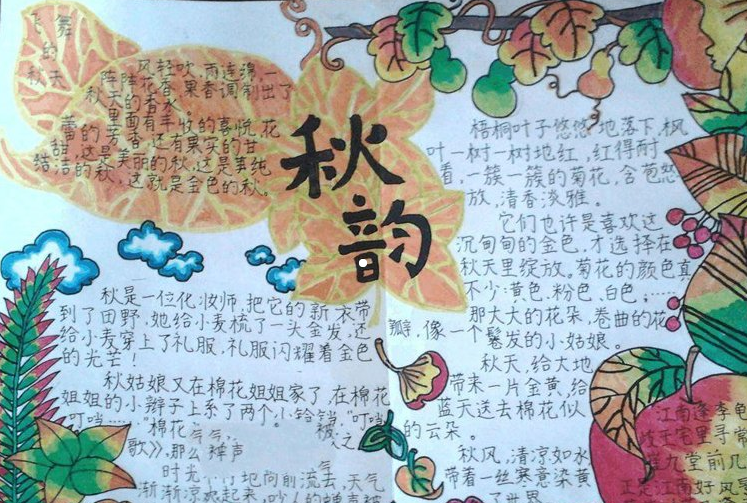 飞舞
的
秋天
风轻吹,雨连绵,一
阵阵花香果香调制出了
秋天的香水。
里面有丰收的喜悦,花
蕾的芳香,还有果实的甘
甜,这是美丽的秋,这是纯
结洁的秋,这就是金色的秋。
秋韵
梧桐叶子悠悠地落下,枫
叶一树一树地红,红得耐
看,一簇一簇的菊花,含苞怒
放,清香淡雅。
它们也许是喜欢这
沉甸甸的金色,才选择在
秋天里绽放。菊花的颜色真
不少:黄色、粉色、白色,……
那大大的花朵,卷曲的花
瓢,像一个鬈发的小姑娘。
秋天,给大地
带来一片金黄,给
蓝天送去棉花似
的云朵。
秋风,清凉如水
带着一丝寒意染黄
了世界
秋是一位化妆师,把它的新衣带
到了田野,她给小麦梳了一头金发,还
给小麦穿上了礼服,礼服闪耀着金色
的光芒!
秋姑娘又在棉花姐姐家了,在棉花
姐姐的小辫子上系了两个小铃铛,"叮当
叮当……"棉花
歌》,那么
时光
地向前流去,天气
渐渐凉爽起来
江南逢李龟
宅里寻常
崔九堂前几
正是江南好风景